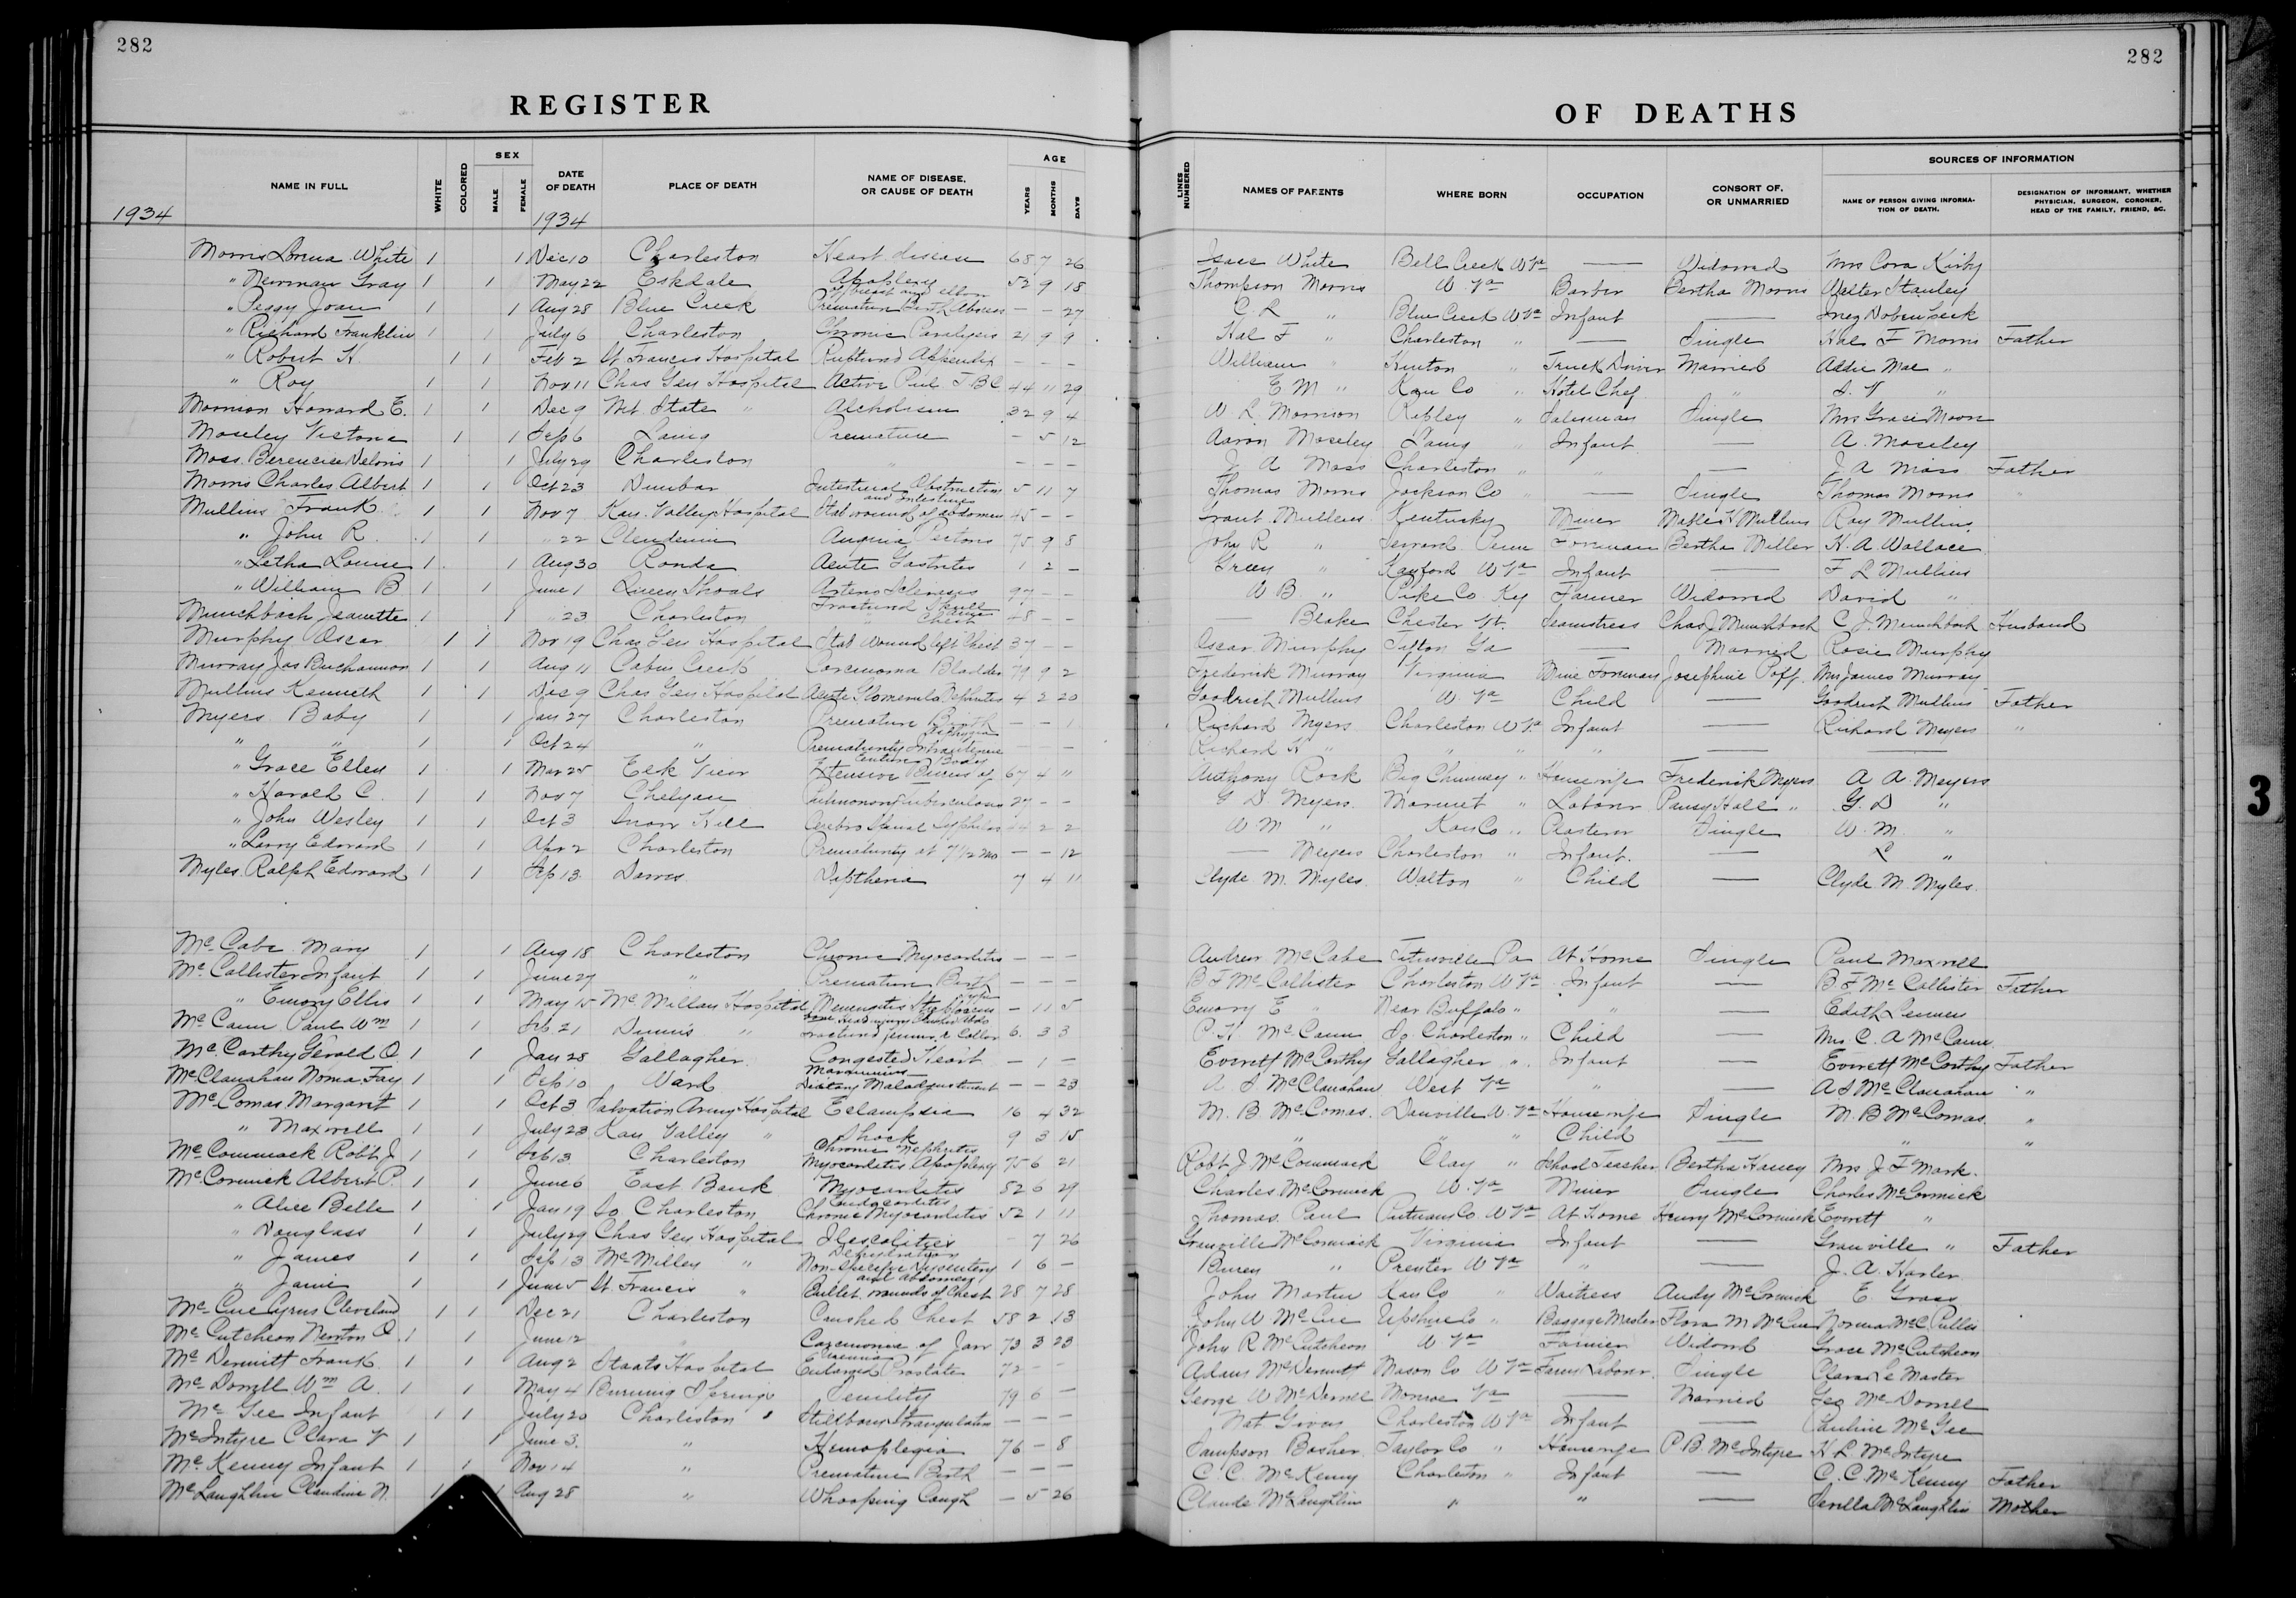 282
282
REGISTER
OF DEATHS
NAME IN FULL WHITE COLORED SEX MALE FEMALE DATE OF DEATH PLACE OF DEATH NAME OF DISEASE, OR CAUSE OF DEATH AGE YEARS MONTHS DAYS
LINES NUMBERED NAMES OF PARENTS WHERE BORN OCCUPATION CONSORT OF, OR UNMARRIED SOURCES OF INFORMATION NAME OF PERSON GIVING INFORMATION OF DEATH. DESIGNATION OF INFORMANT, WHETHER PHYSICIAN, SURGEON, CORONER, HEAD OF THE FAMILY, FRIEND, &C.
1934 1934
Morris Lorena White 1 1 Dec 10 Charleston Heart disease 68 7 26 Isaac White Bell Creek W Va — Widowed Mrs Cora Kirby
" Newman Gray 1 1 May 22 Eskdale Apoplexy 52 9 18 Thompson Morris W. Va Barber Bertha Morris Walter Stanley
" Peggy Joan 1 1 Aug 28 Blue Creek Premature Birth Abscess of breast and elbow — — 27 C. L. " Blue Creek W Va Infant —
" Richard Franklin 1 1 July 6 Charleston Chronic Paralysis 21 9 9 Hal F " Charleston " — Single Hal F Morris Father
" Robert H. 1 1 Feb 2 St Francis Hospital Ruptured Appendix — — — William " Hinton " Truck Driver Married Addie Mae "
" Roy 1 1 Nov 11 Chas Gen Hospital Active Pul. T B C 44 11 29 E M " Kan Co " Hotel Chef " "
Morrison Howard E. 1 1 Dec 9 Mt State " Alcholism 32 9 4 W. L. Morrison Ripley " Salesman Single Mrs Grace Moon
Moseley Victoria 1 1 Sep 6 Laing Premature — 5 12 Aaron Moseley Laing " Infant — A. Moseley
Moss Berencise Deloris 1 1 July 29 Charleston " — — — J A Moss Charleston " " — J A Moss Father
Morris Charles Albert 1 1 Oct 23 Dunbar Intestinal Obstruction 5 11 7 Thomas Morris Jackson Co " — Single Thomas Morris "
Mullins Frank 1 1 Nov 7 Kan. Valley Hospital Stab wound of abdomen and intestines 45 — — Grant Mullens Kentucky Miner Mullins Roy Mullins
" John R. 1 1 " 22 Clendenin Angina Pectoris 75 9 8 John R " Foreman Bertha Miller H. A. Wallace
" Letha Louise 1 1 Aug 30 Ronda Acute Gastritis 1 2 — Green " Kayford W Va Infant — F L Mullins
" William B 1 1 June 1 Queen Shoals Arterio Sclerosis 97 — — W B " Pike Co Ky Farmer Widowed David "
Munchbach Jeanette 1 1 " 23 Charleston Fractured Skull and Chest 48 — — — Blake Chester Vt. Seamstress Chas J Munchbach C. J. Munchbach Husband
Murphy Oscar 1 1 Nov 19 Chas Gen Hospital Stab Wound left Chest 37 — — Oscar Murphy Tifton Ga — Married Rosie Murphy
Murray Jas Buchannon 1 1 Aug 11 Cabin Creek Carcinoma Bladder 79 9 2 Frederick Murray Virginia Mine Foreman Josephine Poff Mrs James Murray
Mullins Kenneth 1 1 Dec 9 Chas Gen Hospital Acute Nephritis 4 2 20 Goodrich Mullins W. Va Child — Goodrich Mullins Father
Myers Baby 1 1 Jan 27 Charleston Premature Birth — — 1 Richard Myers Charleston W Va Infant — Richard Meyers "
" " 1 1 Oct 24 " Prematurity Intrauterine Asphyxia — — — Richard H " " " " — —
" Grace Ellen 1 1 Mar 25 Elk View Extensive Burns of Entire Body 67 4 11 Anthony Rock Big Chimney " Housewife Frederick Myers A A. Meyers
" Harold C. 1 1 Nov 7 Chelyan Pulmonary Tuberculosis 27 — — G D Myers Marmet " Laborer Pansy Hall " G. D "
" John Wesley 1 1 Oct 3 Snow Hill Cerebro Spinal Syphilis 44 2 2 W M " Kan Co " Plasterer Single W. M. "
" Larry Edward 1 1 Apr 2 Charleston Prematurity at 7 1/2 mo — — 12 — Meyers Charleston " Infant — "
Myles Ralph Edward 1 1 Sep 13 Dawes Diptheria 7 4 11 Clyde M. Myles Walton " Child — Clyde M Myles.
McCabe Mary 1 1 Aug 18 Charleston Chronic Myocarditis — — — Andrew McCabe Titusville Pa At Home Single Paul Maxwell
McCallister Infant 1 1 June 27 " Premature Birth — — — B F McCallister Charleston W Va Infant — B F McCallister Father
" Emory Ellis 1 1 May 15 McMillan Hospital Meningitis — 11 5 Emory E " Near Buffalo " " —
McCann Paul Wm 1 1 Sep 21 Dunns " 6 3 3 P. H. McCann So Charleston " Child — Mrs. C. A McCann
McCarthy Gerald O. 1 1 Jan 28 Gallagher Congested Heart — 1 — Everett McCarthy Gallagher " Infant — Everett McCarthy Father
McClanahan Noma Fay 1 1 Sep 10 Ward Marasmus Dietary Maladjustment — — 23 A S McClanahan West Va " — A S McClanahan "
McComas Margaret 1 1 Oct 3 Salvation Army Hospital Eclampsia 16 4 32 M. B. McComas Danville W. Va Housewife Single M. B McComas "
" Maxwell 1 1 July 23 Kan Valley " Shock 9 3 15 " " " Child — " "
McCommack Robt J 1 1 Sep 13 Charleston Chronic Nephritis Myocarditis Apoplexy 75 6 21 Robt J McCommack Clay " School Teacher Bertha Haney Mrs J F Mark.
McCormick Albert P. 1 1 June 6 East Bank Myocarditis 52 6 29 Charles McCormick W. Va Miner Single Charles McCormick
" Alice Belle 1 1 Jan 19 So Charleston Endocarditis Chronic Myocarditis 52 1 11 Thomas Paul Putnam Co. W Va At Home Henry McCormick Everett "
" Douglass 1 1 July 29 Chas Gen Hospital Ileocolitis — 7 26 Granville McCormick Virginia Infant — Granville " Father
" James 1 1 Sep 13 McMilley " Dehydration Non-Specific Dysentery 1 6 — " Prenter W Va " — J. A. Harler
" Jamie 1 1 June 5 St Francis " Bullet wounds of Chest and abdomen 28 7 28 John Martin Kan Co " Waitress Andy McCormick E. Grass
McCue Cyrus Cleveland 1 1 Dec 21 Charleston Crushed Chest 58 2 13 John W McCue Upshur Co " Baggage Master Flora M McCue
McCutcheon Newton O. 1 1 June 12 " Carcinoma of Jaw 73 3 23 John R McCutcheon W Va Farmer Widowed Grace McCutcheon
McDermitt Frank 1 1 Aug 2 Staats Hospital Uremia Enlarged Prostate 72 — — Adam McDermitt Mason Co W Va Farm Laborer Single
McDorrell Wm A. 1 1 May 4 Burning Springs Senility 79 6 — Monroe Va — Married Geo McDorrell
McGee Infant 1 1 July 20 Charleston Stillborn Strangulation — — — Nat Charleston W Va Infant — Pauline McGee
McIntyre Clara V 1 1 June 3 " Hemoplegia 76 — 8 Sampson Bosher Taylor Co " Housewife P. B. McIntyre H. L. McIntyre
McKenny Infant 1 1 Nov 14 " Premature Birth — — — C. C. McKenny Charleston " Infant — C. C. McKenny Father
McLaughlin Claudine N. 1 1 Aug 28 " Whooping Cough — 5 26 Claude McLaughlin " " — Sevilla McLaughlin Mother
3